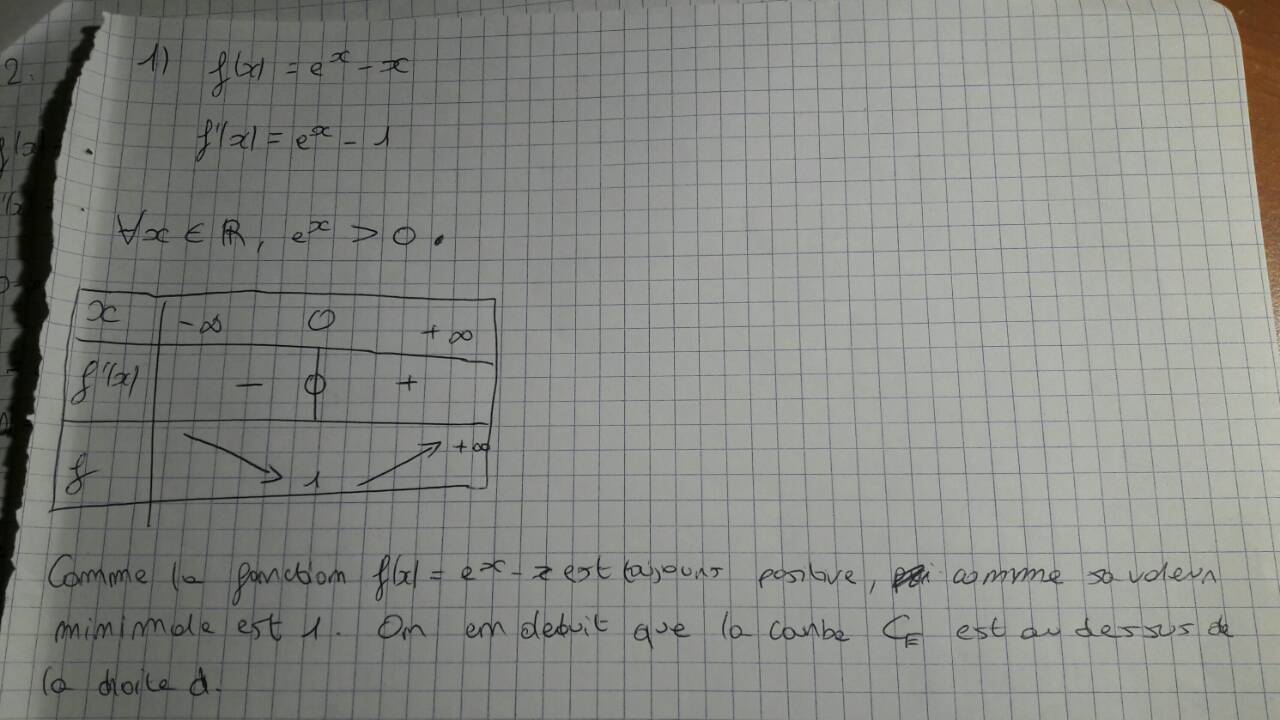 2.
1) f(x) = e^x - x
f'(x) = e^x - 1
∀x ∈ ℝ, e^x > 0.
x -∞ 0 +∞
f'(x) - 0 +
f 1 +∞
Comme la fonction f(x) = e^x - x est toujours positive, comme sa valeur
minimale est 1. On en deduit que la courbe C_E est au dessus de
la droite d.